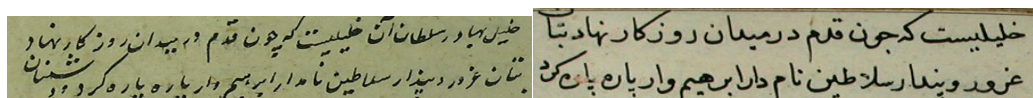 خلیل بهادر سلطان آن خلیلیست که چون قدم در میدان روزکار نهاد
بتان غرور و پندار سلاطین نامدار ابراهیم وار پاره پاره کرد و
خلیلیست که جون قدم در میدان روزکار نهاد بتان
غرور و پندار سلاطین نامدار ابراهیم وار پاره پاره کرد